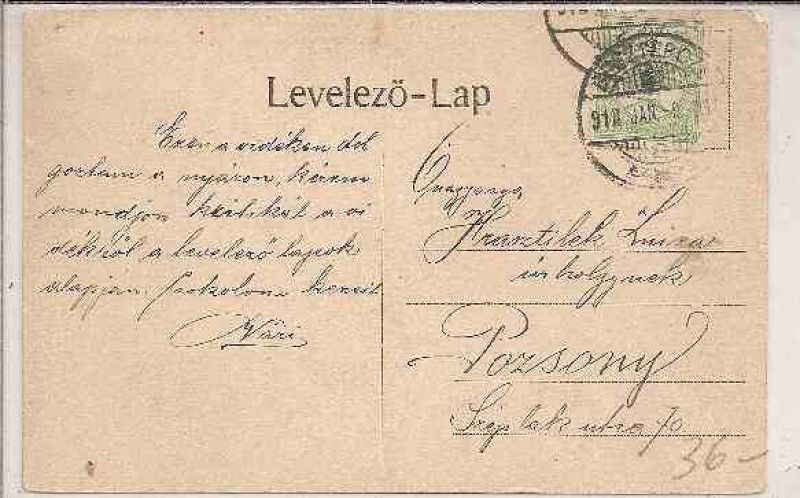 Levelező-Lap
Ezen a vidéken dol
goztam a nyáron, kérem
mondjon kritikát a vi
dékről a levelező lapok
alapján. Csókolom kezeit
Nári
Őnagysága
Hrasztilek Luiza
úrhölgynek
Pozsony
Széplak utca 70
918 JAN
36-